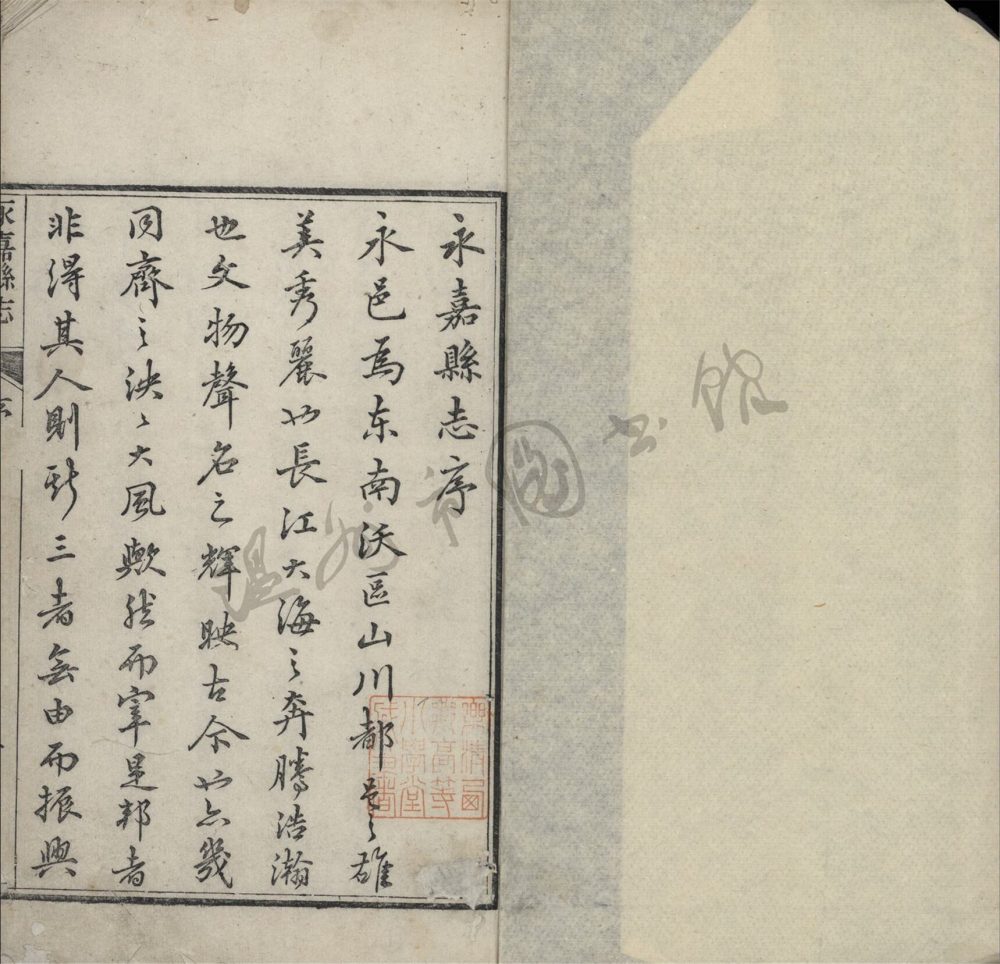 永嘉縣志序
永邑為东南沃區山川都邑之雄
美秀麗也長江大海之奔騰浩瀚
也文物聲名之輝映古今也亦幾
同齊之泱〻大風歟然而宰是邦者
非得其人則斯三者無由而振興
永嘉縣志
溫州市圖书館